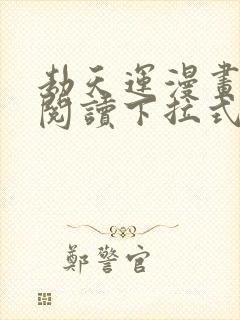 劫天運漫畫
閱讀下拉式
鄭警官